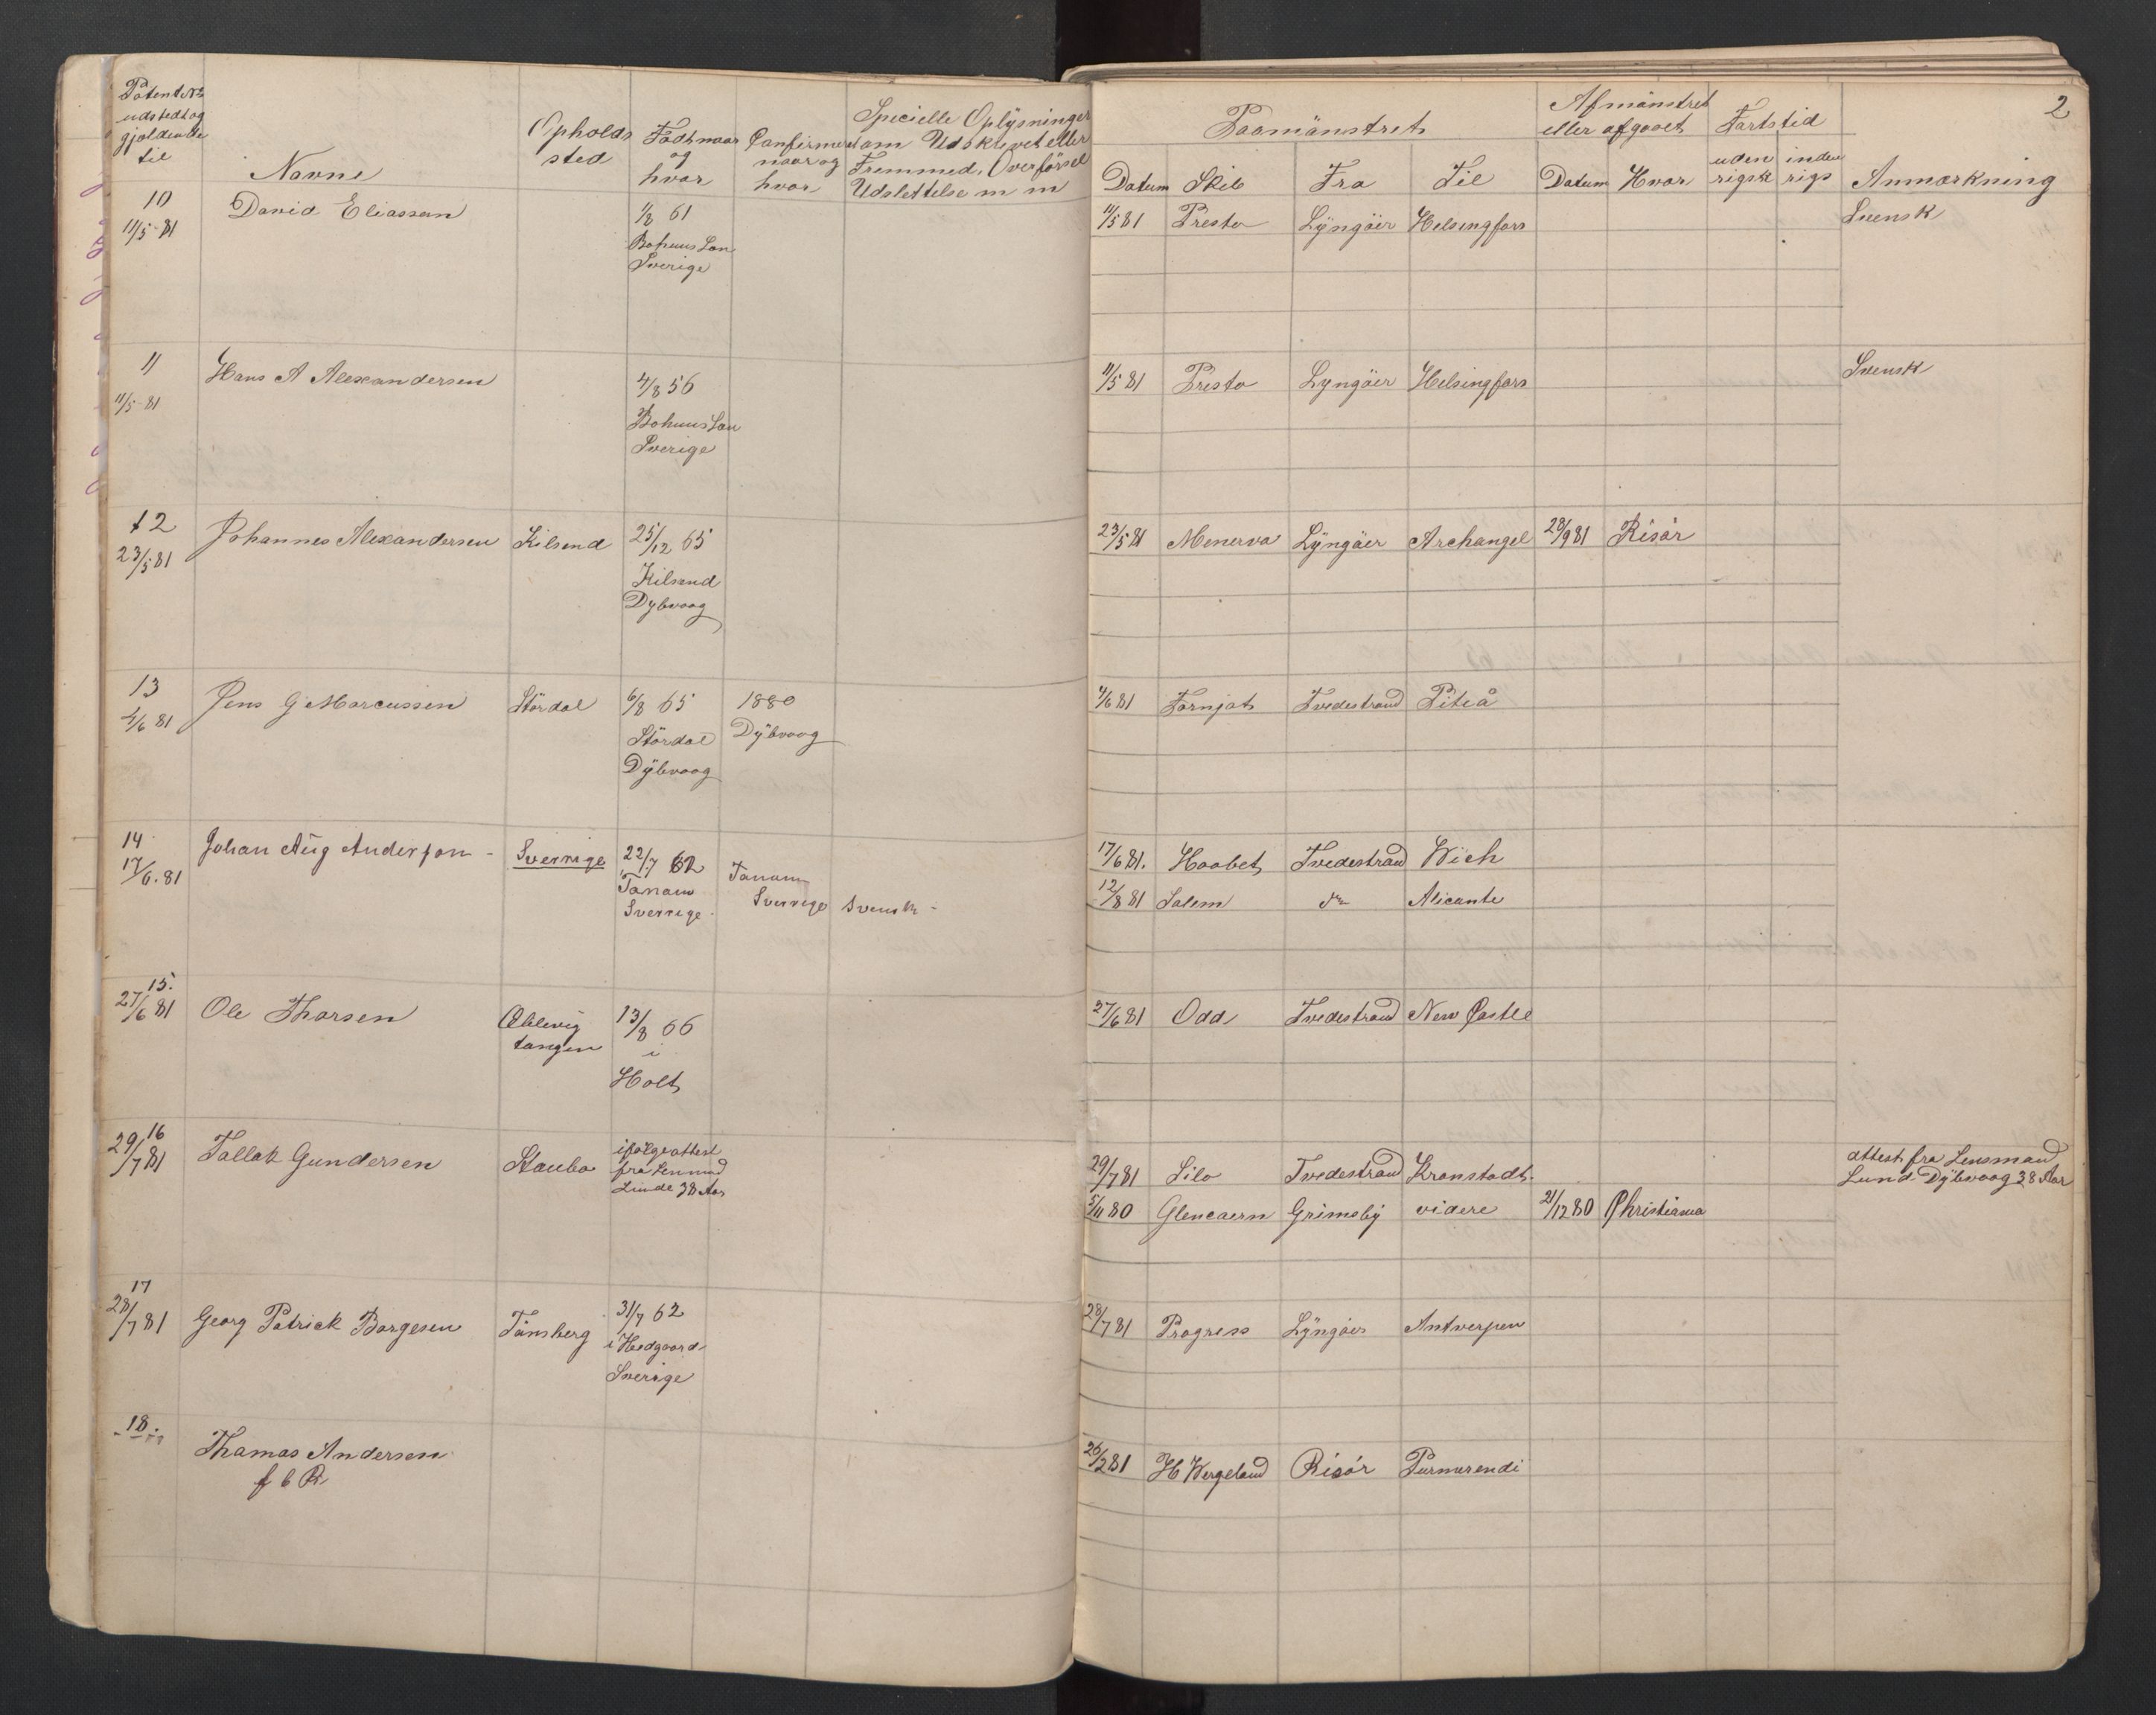 Patent No
udstedt og
gjældende
til
Navne
Opholds
sted
Födt naar
og
hvor
Confirmeret
naar og
hvor
Specielle Oplysninger
om Udskrevet eller
Fremmed. Overførsel
Udslettelse m m
10
11/5 81
David Eliassen
1/8 61
Bohuus Lan
Sverige
11
11/5 81
Hans A Alexandersen
4/8 56
Bohuus Lan
Sverige
12
23/5 81
Johannes Alexandersen
Kilsend
25/12 65
Kilsend
Dybvaag
13
4/6 81
Jens G Marcussen
Stördal
6/8 65
Stördal
Dybvaag
1880
Dybvaag
14
17/6. 81
Johan Aug Anderson -
Sverrige
22/7 62
Tanam
Sverrige.
Tanum
Sverrige
Svensk -
15.
27/6 81
Ole Thorsen
tangen
13/8 66
i
Holt
16
29/7 81
Tallak Gundersen
Staubo
ifølge attest
fra Lensmd
Linde 38 Aar
17
28/7 81
Georg Patrick Borgesen
Tönsberg
31/7 62
i Hedgaard
Sverige
18
Thomas Andersen
f 6 R
2
Paamönstret
Afmönstret
eller afgaaet
Fartstid
Datum
Skib
Fra
Til
Datum
Hvor
uden
rigsk
inden
rigs
Anmærkning
11/5 81 Presto Lyngöer Helsingfors
Svensk
11/5 81 Presto Lyngöer Helsingfors
Svensk
23/5 81 Menerva Lyngöer Archangel 28/9 81 Risör
4/6 81 Fornjot Tvedestrand Piteå
17/6 81. Haabet Tvedestrand Wich
12/8 81 Salem do Alicante
27/6 81 Odd Tvedestrand New Castle
29/7 81 Silo Tvedestrand Kronstadt.
attest fra Lensmand
Lund Dybvaag 38 Aar
5/11 80 Glencaern Grimsby videre 21/12 80 Christiania
28/7 81 Progress Lyngöer Antwerpen
26/2 81 H Wergeland Risör Purmerendi